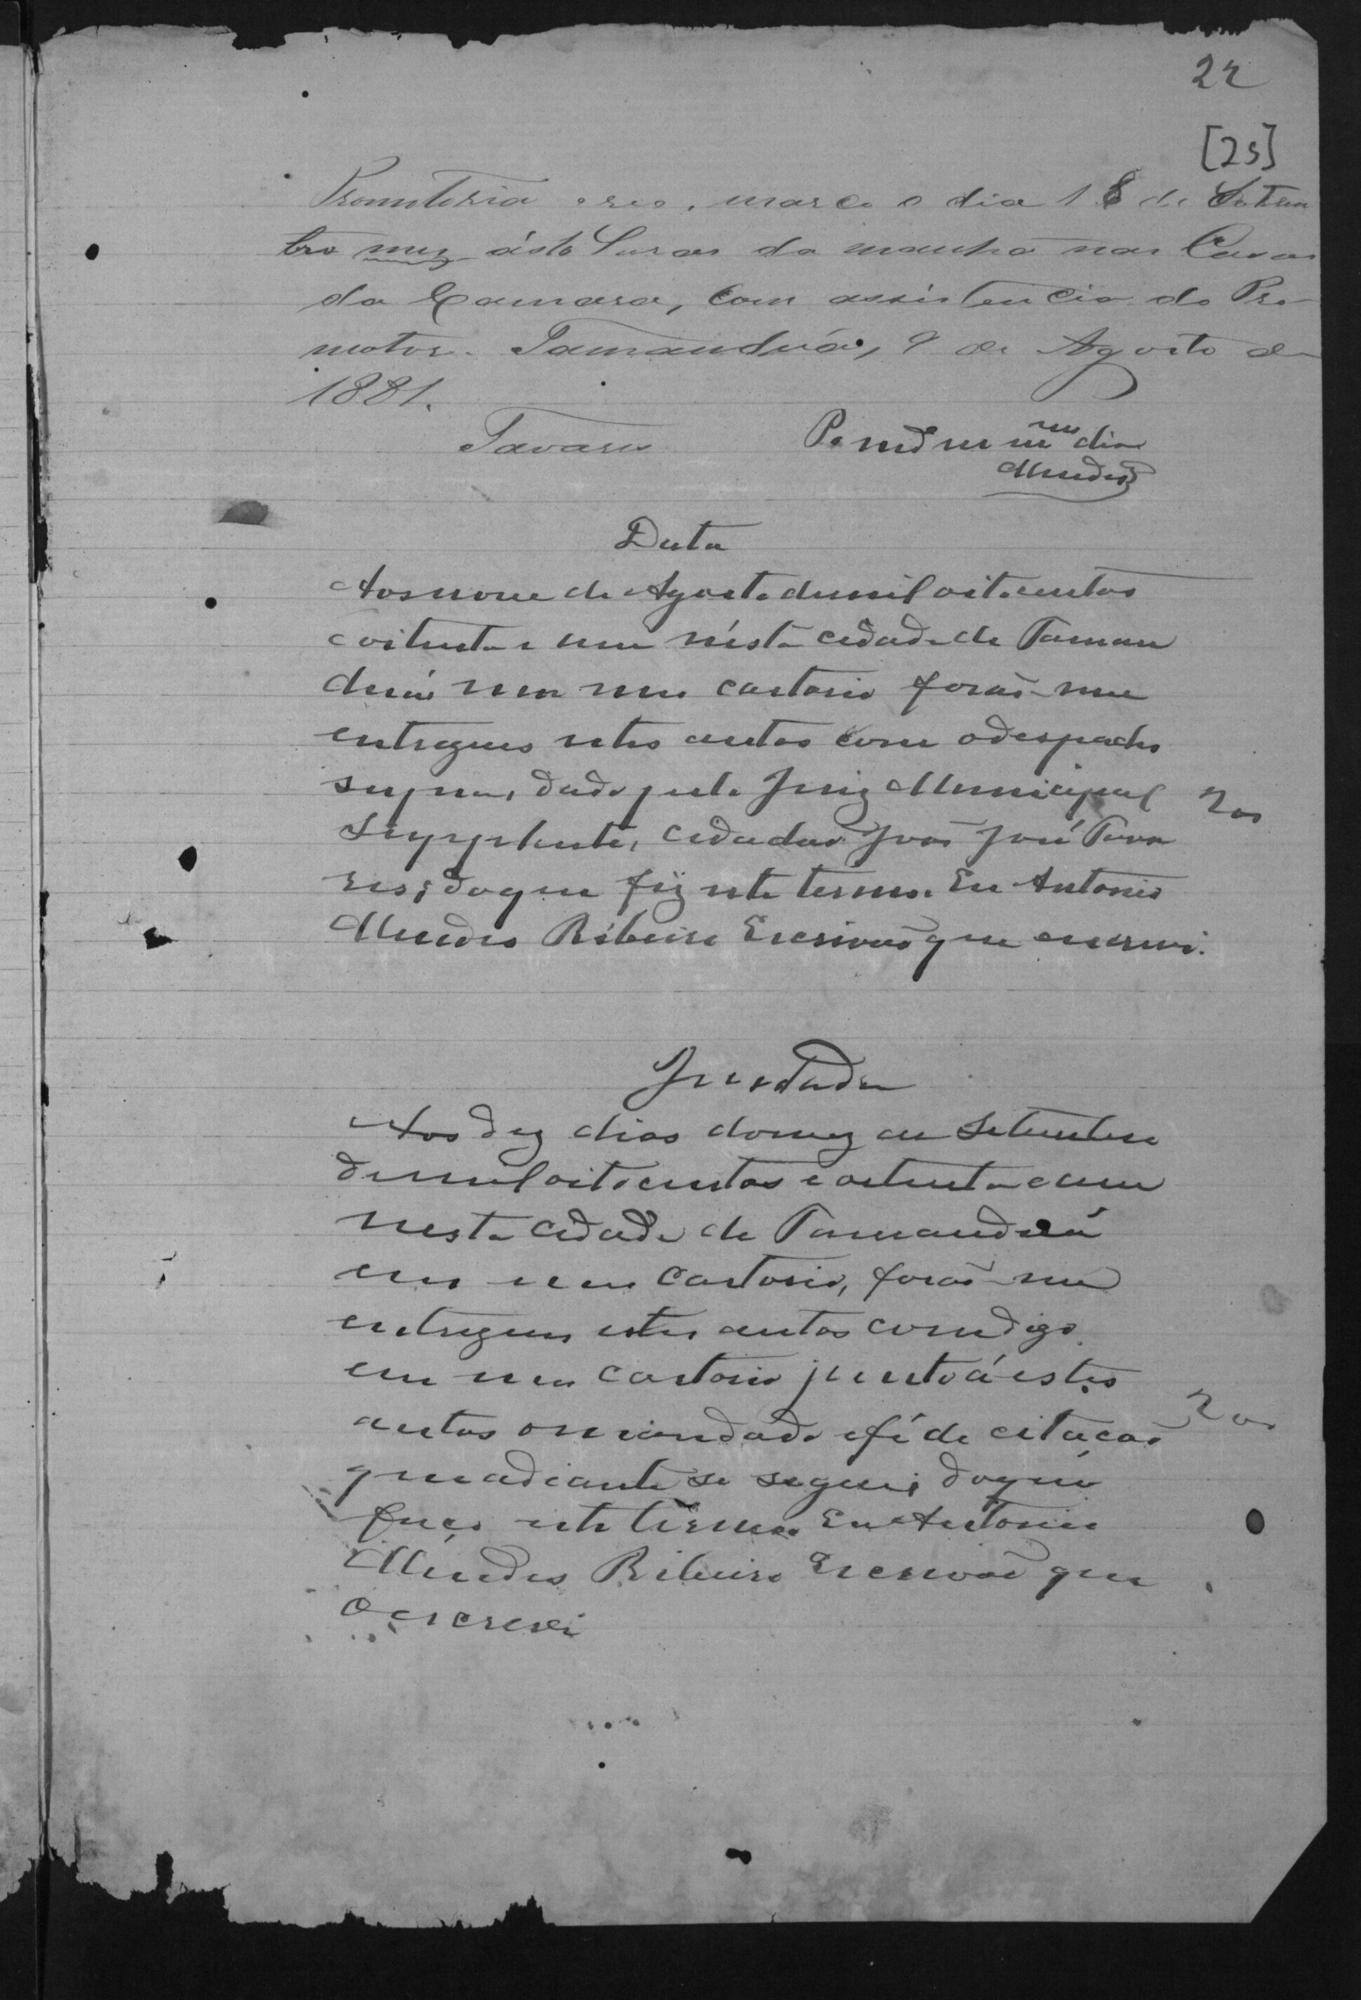 22
[25]
Promotoria e reo, marco o dia 18 de Setem
bro ás 10 horas da manhã nas Casas
da Camara, com assistencia do Pro
motor. Tamanduá, 9 de Agosto de
1881.
Tavares
Mendes
Data
Aos nove de Agosto de mil oitocentos
e oitenta e um nésta cidade de Taman
duá em meu cartorio forão-me
entregues estes autos com o despacho
supra, dado pelo Juiz Municipal
Supplente, cidadão João José Tava
res; do que fiz este termo. Eu Antonio
Mendes Ribeiro Escrivão que escrevi.
200
Juntada
Aos dez dias do mez de Setembro
de mil oitocentos e oitenta e um
nesta cidade de Tamanduá
em meu cartorio, forão-me
entregues estes autos com digo
em meu cartorio junto á estes
autos o mandado e fé de citacão
que adiante se segue; do que
faço este termo. Eu Antonio
Mendes Ribeiro Escrivão que
o escrevi
200